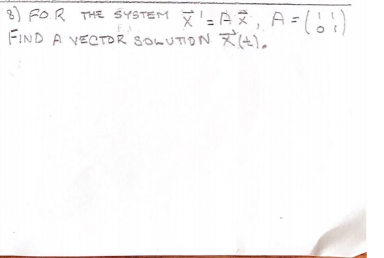 8) FOR THE SYSTEM x⃗' = A x⃗, A = (1 1 / 0 1)
FIND A VECTOR SOLUTION x⃗(t).